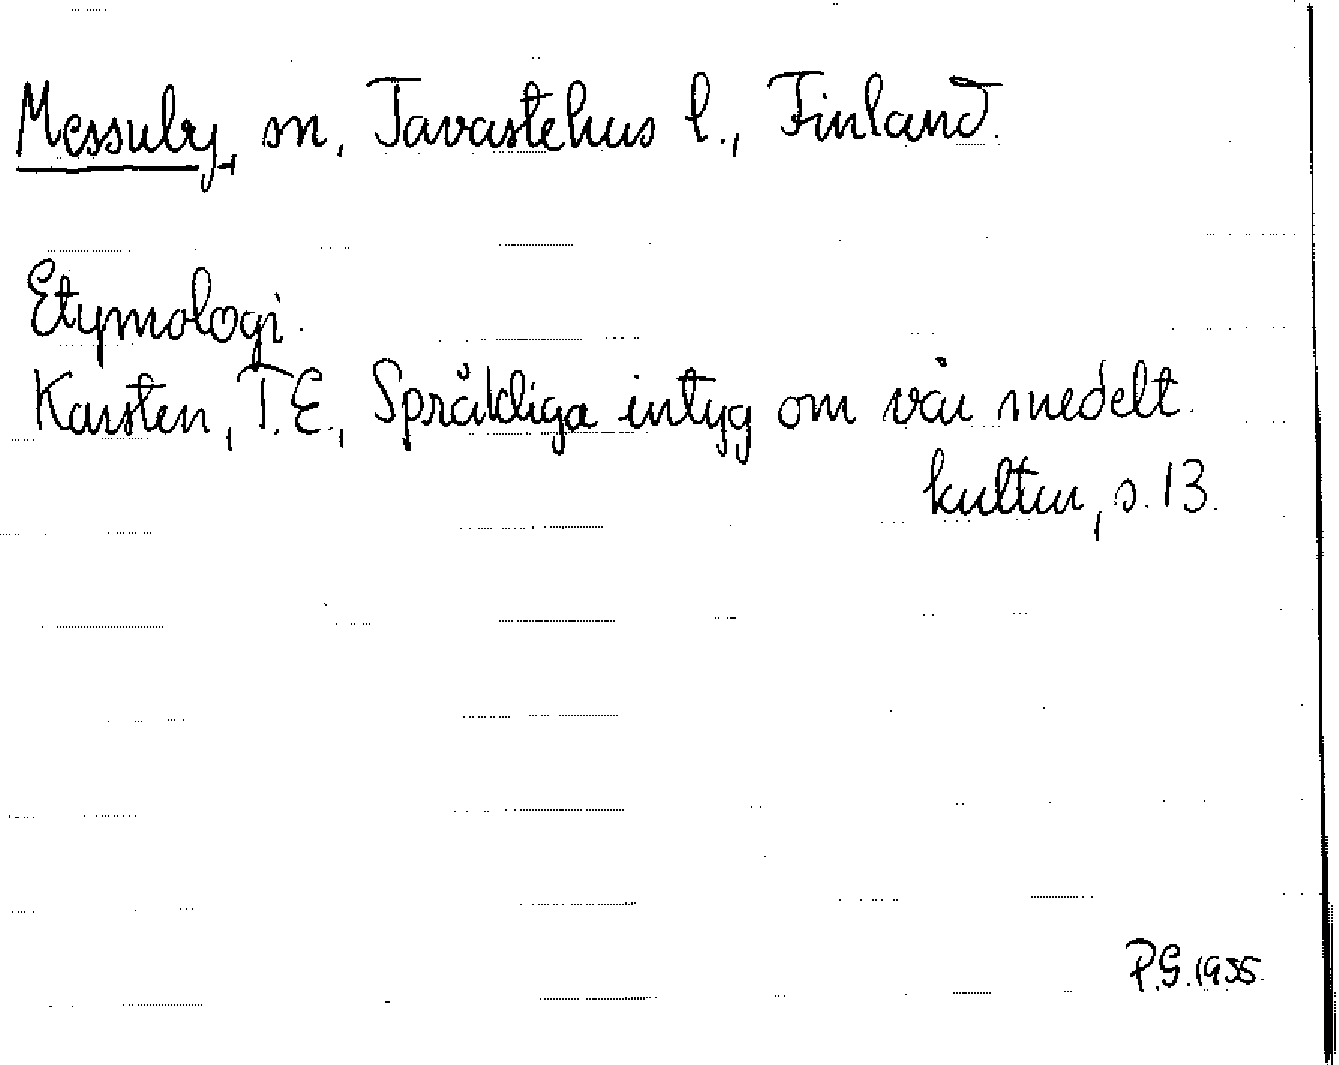 Messuby, sn, Tavastehus l., Finland.
Etymologi.
Karsten, T.E., Språkliga intyg om vår medelt.
kultur, s. 13.
P.G. 1935